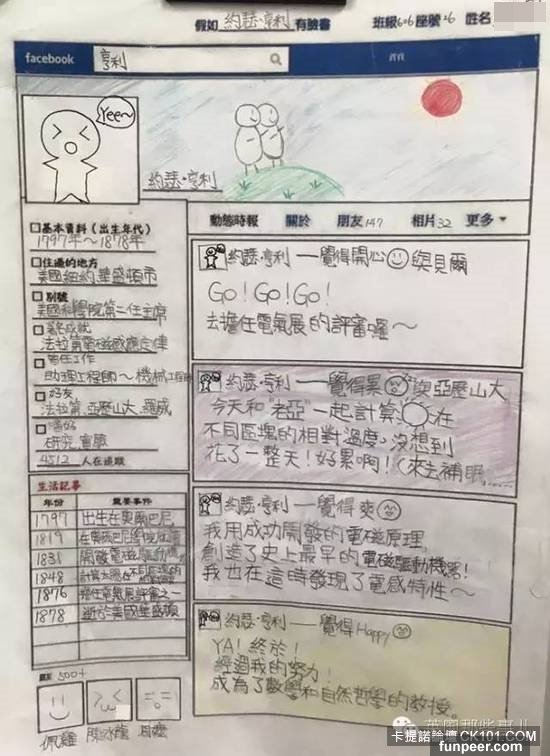 假如 約瑟·亨利 有臉書 班級606座號26 姓名
facebook 亨利
Yee~
約瑟·亨利
動態時報 關於 朋友147 相片32 更多
基本資料(出生年代)
1797年~1878年
住過的地方
美國紐約、華盛頓市
別號
美國科學院第二任主席
法拉第電磁感應定律
曾任工作
助理工程師~機械工程師
好友
法拉第、亞歷山大、羅威
嗜好
研究、實驗
4512 人在追蹤
生活記事
年份 重要事件
1797 出生在奧爾巴尼
1819
1831
1848
1876 擔任電氣展評審之一
1878 逝於美國華盛頓
500+
約瑟·亨利——覺得開心 與貝爾
Go!Go!Go!
去擔任電氣展的評審囉~
約瑟·亨利——覺得累 與亞歷山大
今天和“老亞”一起計算 在
不同區塊的相對溫度,沒想到
花了一整天!好累啊!(來去補眠……
約瑟·亨利——覺得爽
我用成功開發的電磁原理,
創造了史上最早的電磁驅動機器!
我也在這時發現了電感特性~
約瑟·亨利——覺得Happy
YA!終於!
經過我的努力!
成為了數學和自然哲學的教授。
英國那些事儿
卡提諾論壇 CK101.COM
funpeer.com